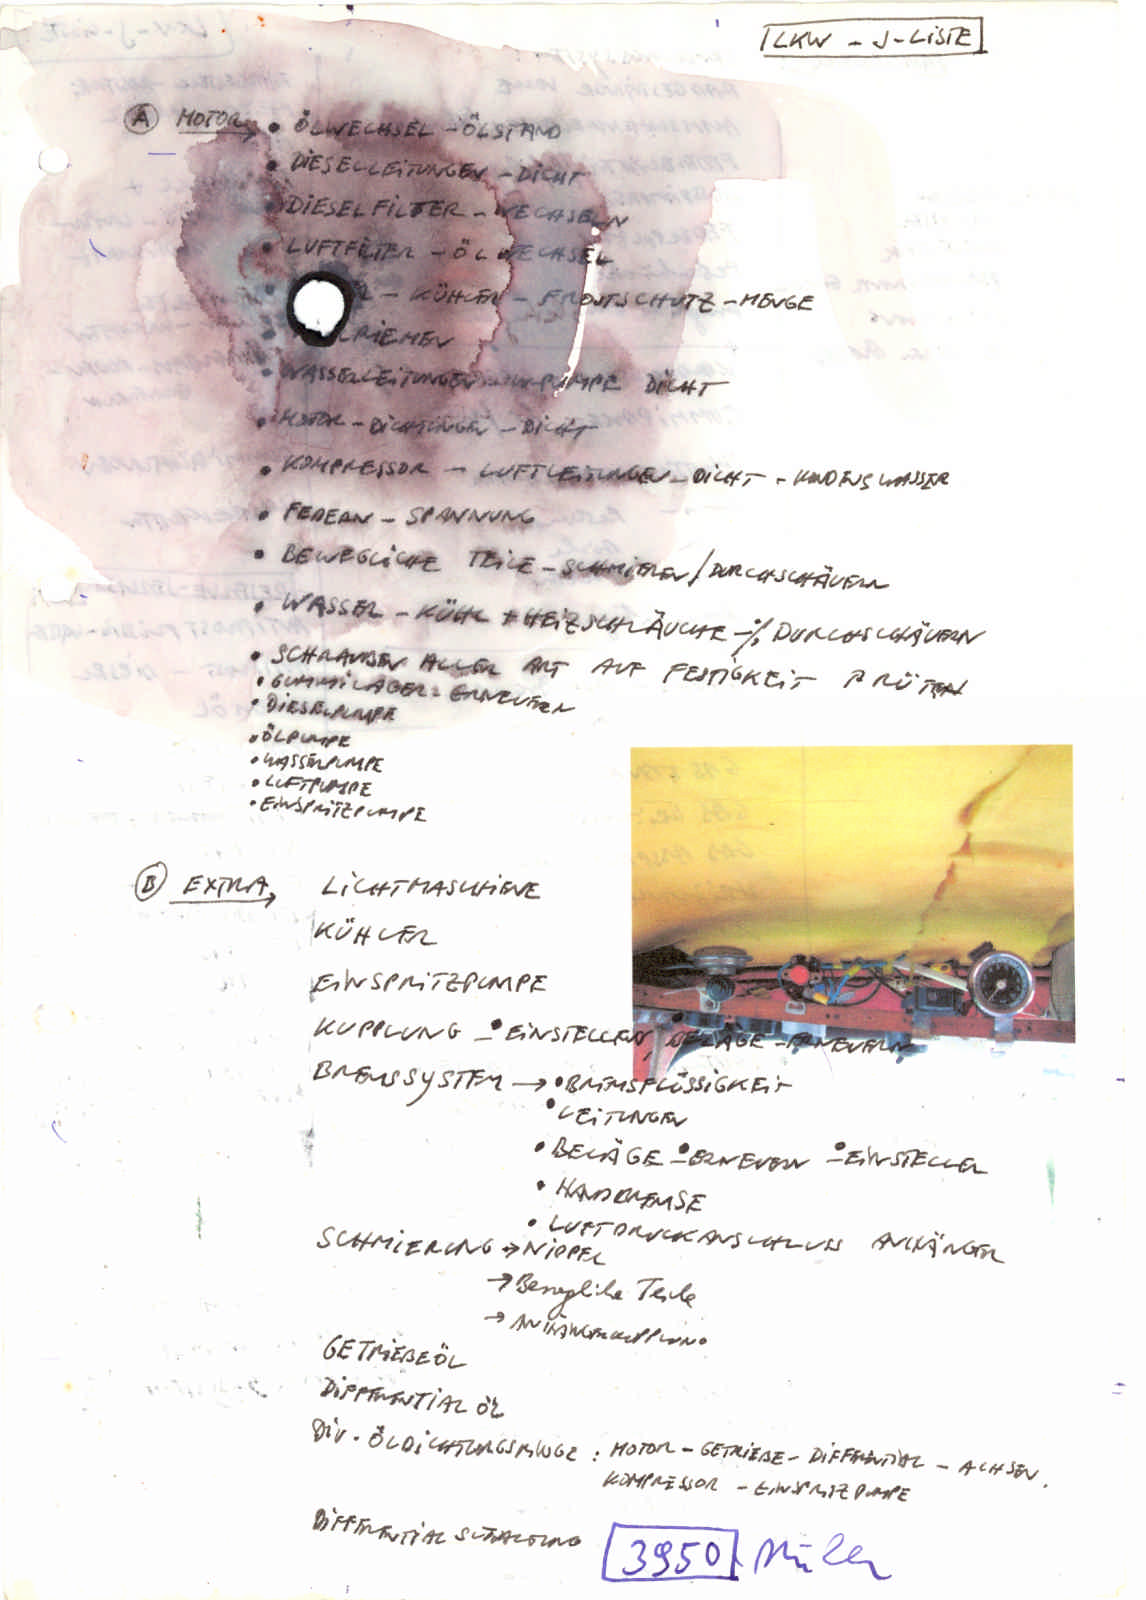 LKW - J-LISTE
(A) MOTOR → • ÖLWECHSEL - ÖLSTAND
• DIESELLEITUNGEN - DICHT
• DIESELFILTER - WECHSELN
• LUFTFILTER - ÖLWECHSEL
- KÜHLER - FROSTSCHUTZ - MENGE
• WASSERLEITUNGEN - PUMPE DICHT
• MOTOR - DICHTUNGEN - DICHT
• KOMPRESSOR - LUFTLEITUNGEN - DICHT - KONDENSWASSER
• FEDERN - SPANNUNG
• BEWEGLICHE TEILE - SCHMIEREN / DURCHSCHÄUERN
• WASSER - KÜHL + HEIZSCHLÄUCHE - % DURCHSCHÄUERN
• SCHRAUBEN ALLER ART AUF FESTIGKEIT PRÜFEN
• GUMMILAGER - ERNEUERN
• DIESELPUMPE
• ÖLPUMPE
• WASSERPUMPE
• LUFTPUMPE
• EINSPRITZPUMPE
(B) EXTRA → LICHTMASCHIENE
KÜHLER
EINSPRITZPUMPE
KUPPLUNG - • EINSTELLEN, BELÄGE - ERNEUERN
BREMSSYSTEM → • BREMSFLÜSSIGKEIT
• LEITUNGEN
• BELÄGE - • ERNEUERN - • EINSTELLEN
• HANDBREMSE
• LUFTDRUCKANSCHLUSS ANHÄNGER
SCHMIERUNG → NIPPEL
→ Bewegliche Teile
→ ANHÄNGERKUPPLUNG
GETRIEBEÖL
DIFFERENTIAL ÖL
DIV. ÖLDICHTUNGSRINGE : MOTOR - GETRIEBE - DIFFERENTIAL - ACHSEN.
KOMPRESSOR - EINSPRITZPUMPE
DIFFERENTIAL SCHALTUNG
3950 Müller